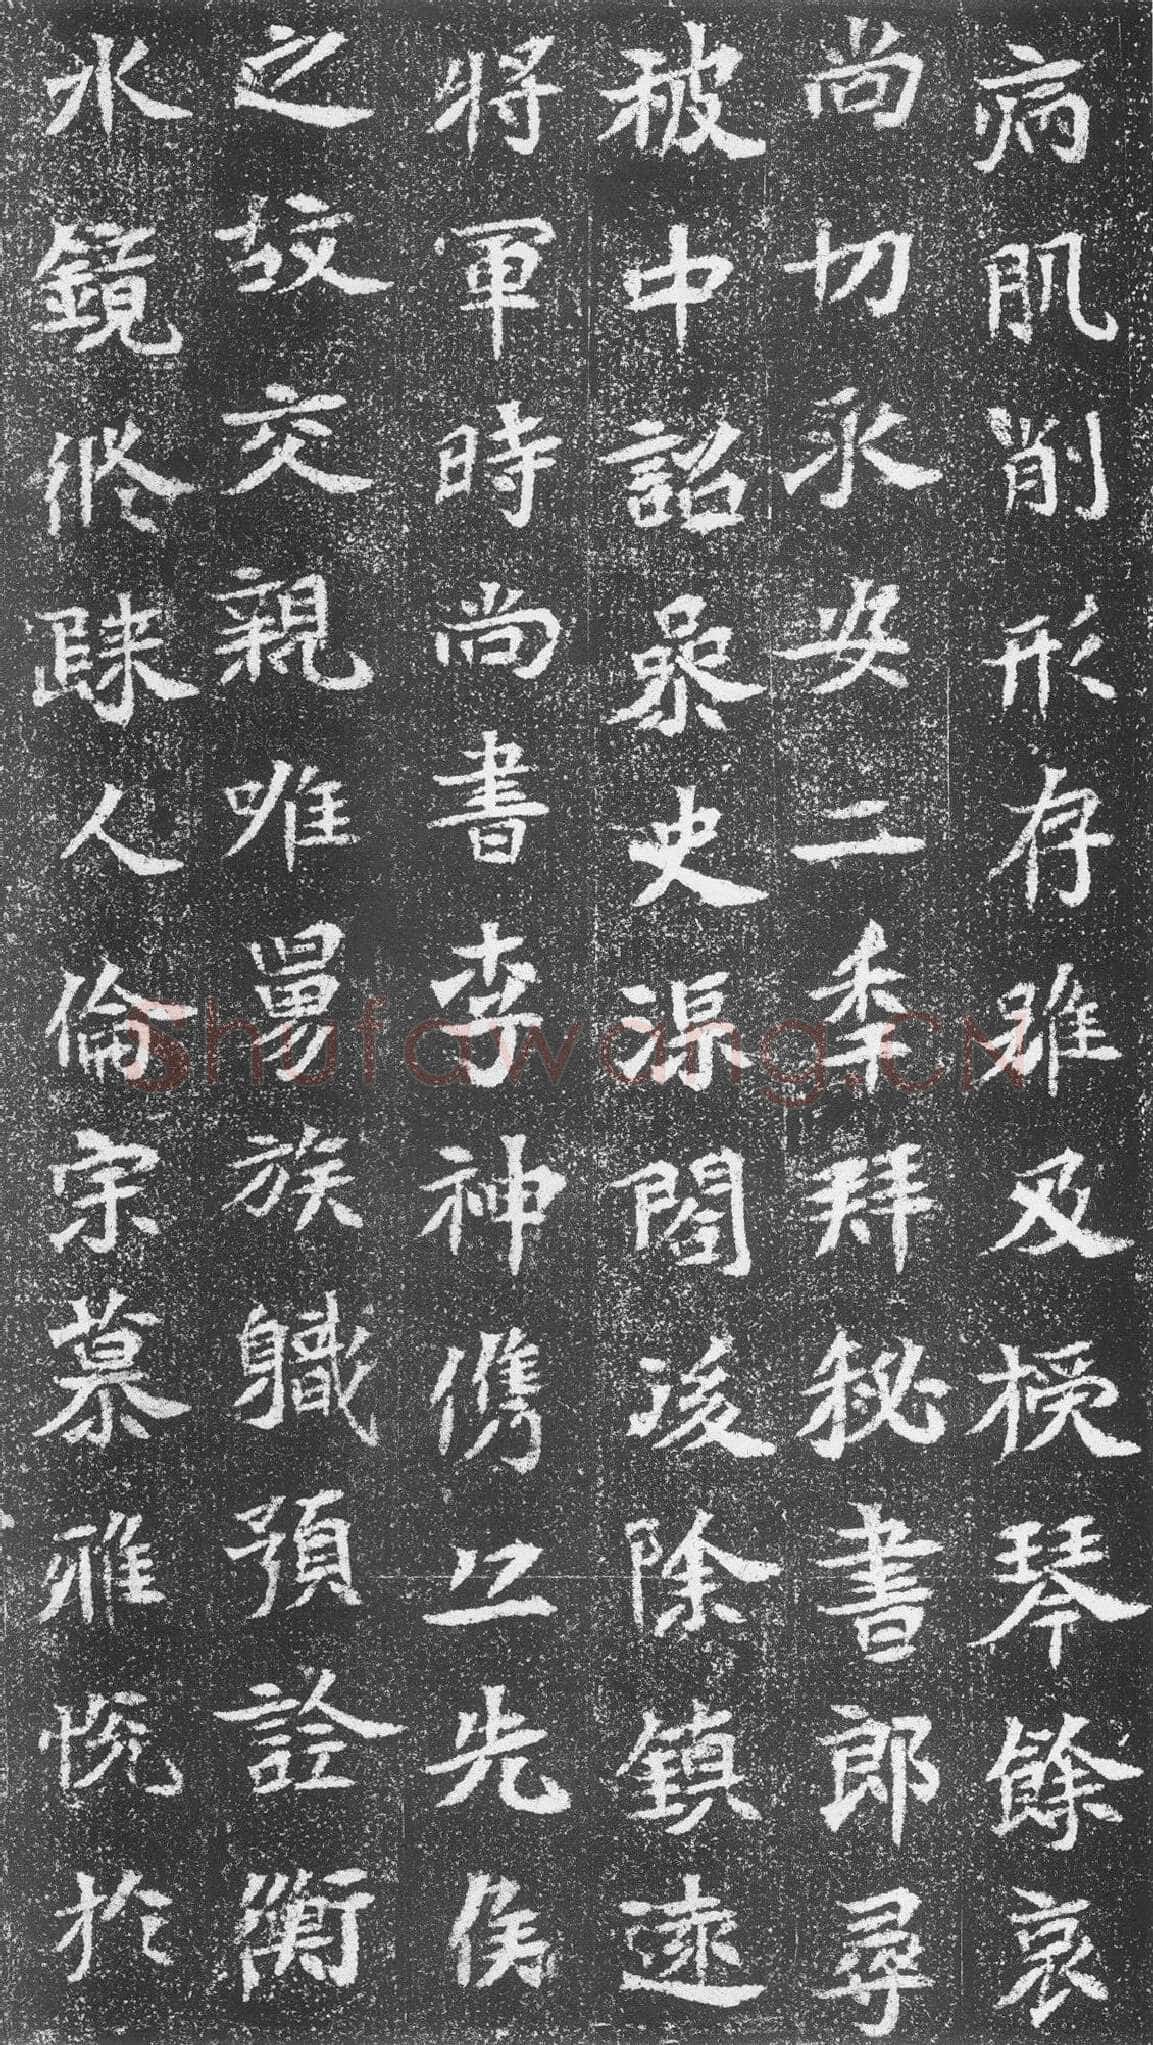 病肌削形存雖及援琴餘哀
尚切永安二秊拜秘書郎尋
被中詔參史渠閣後除鎮遠
將軍時尚書李神儁以先侯
之故交親唯舅族軄預詮衡
水鏡修踈人倫宗慕雅悅於
Shufawang.CN